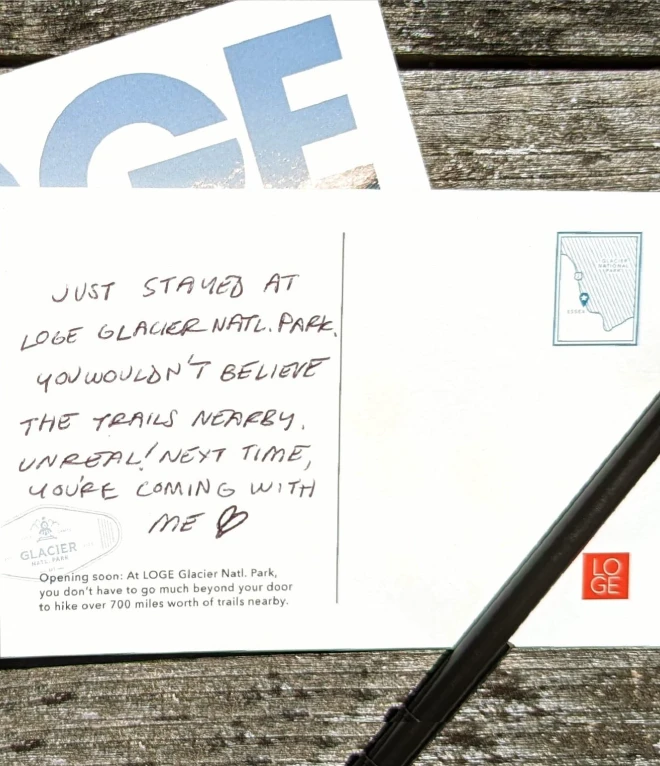 GE
JUST STAYED AT
LOGE GLACIER NATL. PARK.
YOU WOULDN'T BELIEVE
THE TRAILS NEARBY.
UNREAL! NEXT TIME,
YOU'RE COMING WITH
ME
GLACIER
NATL. PARK
Opening soon: At LOGE Glacier Natl. Park,
you don't have to go much beyond your door
to hike over 700 miles worth of trails nearby.
GLACIER
NATIONAL
PARK
ESSEX
LO
GE